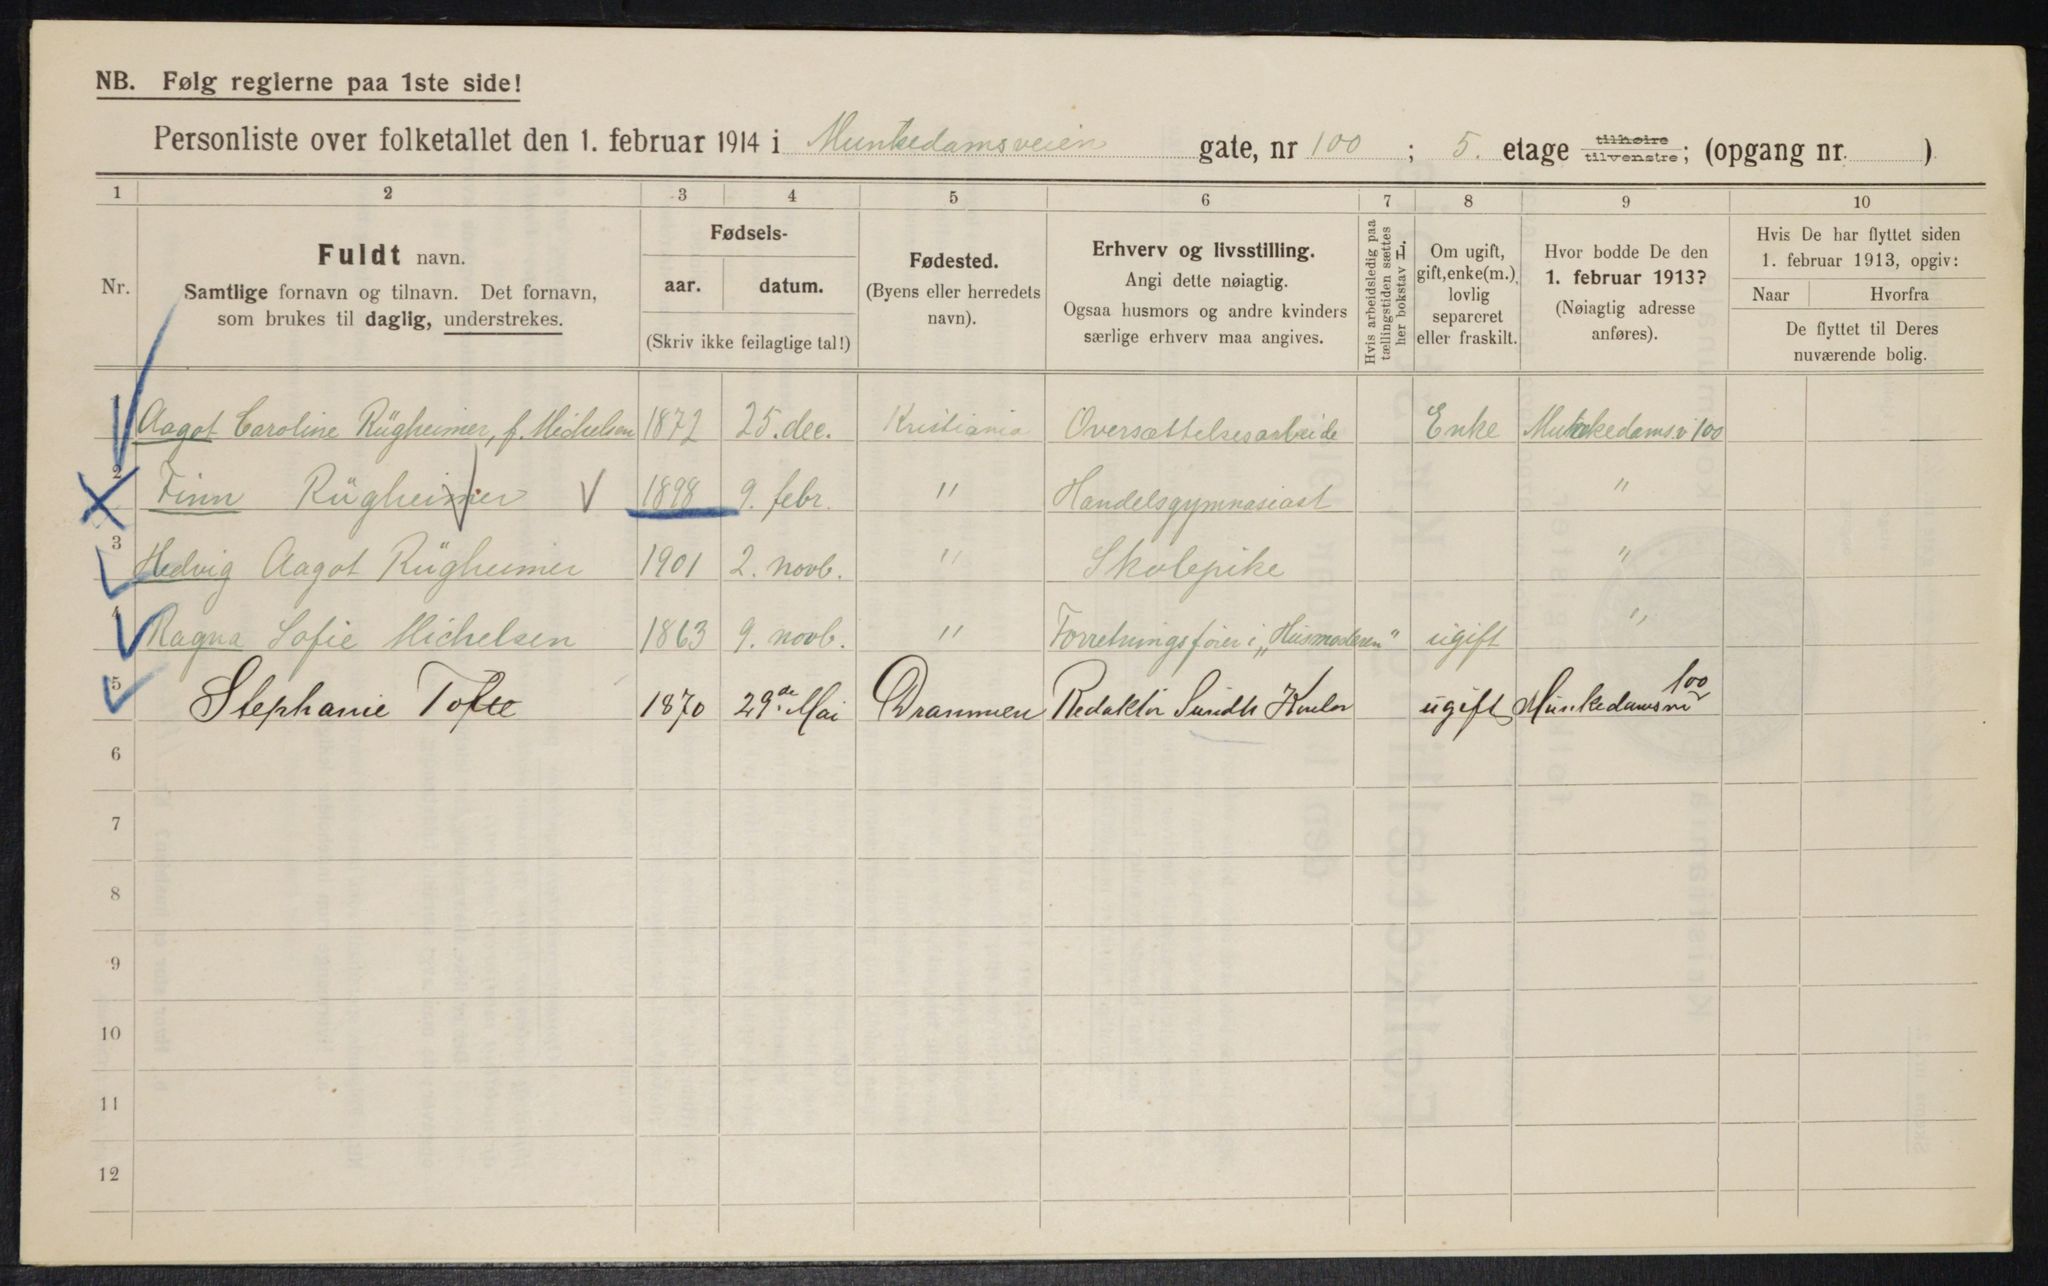 NB. Følg reglerne paa 1ste side!
Personliste over folketallet den 1. februar 1914 i Munkedamsveien gate, nr 100 ; 5. etage tilhøire tilvenstre; (opgang nr. )
1 2 3 4 5 6 7 8 9 10
Nr.
Fuldt navn.
Samtlige fornavn og tilnavn. Det fornavn,
som brukes til daglig, understrekes.
Fødsels-
aar. datum.
(Skriv ikke feilagtige tal!)
Fødested.
(Byens eller herredets
navn).
Erhverv og livsstilling.
Angi dette nøiagtig.
Ogsaa husmors og andre kvinders
særlige erhverv maa angives.
Hvis arbeidsledig paa
tællingstiden sættes
her bokstav L.
Om ugift,
gift, enke(m.),
lovlig
separeret
eller fraskilt.
Hvor bodde De den
1. februar 1913?
(Nøiagtig adresse
anføres).
Hvis De har flyttet siden
1. februar 1913, opgiv:
Naar Hvorfra
De flyttet til Deres
nuværende bolig.
1 Aagot Caroline Rügheimer, f. Michelsen 1872 25. dec. Kristiania Oversættelsesarbeide Enke Munkedamsv 100
2 Finn Rügheimer 1898 9. febr. " Handelsgymnasiast "
3 Hedvig Aagot Rügheimer 1901 2. novb. " Skolepike "
4 Ragna Sofie Michelsen 1863 9. novb. " Forretningsfører i „Husmoderen" ugift "
5 Stephanie Tofte 1870 29de Mai Drammen Redaktør ugift Munkedamsvei 100
6
7
8
9
10
11
12